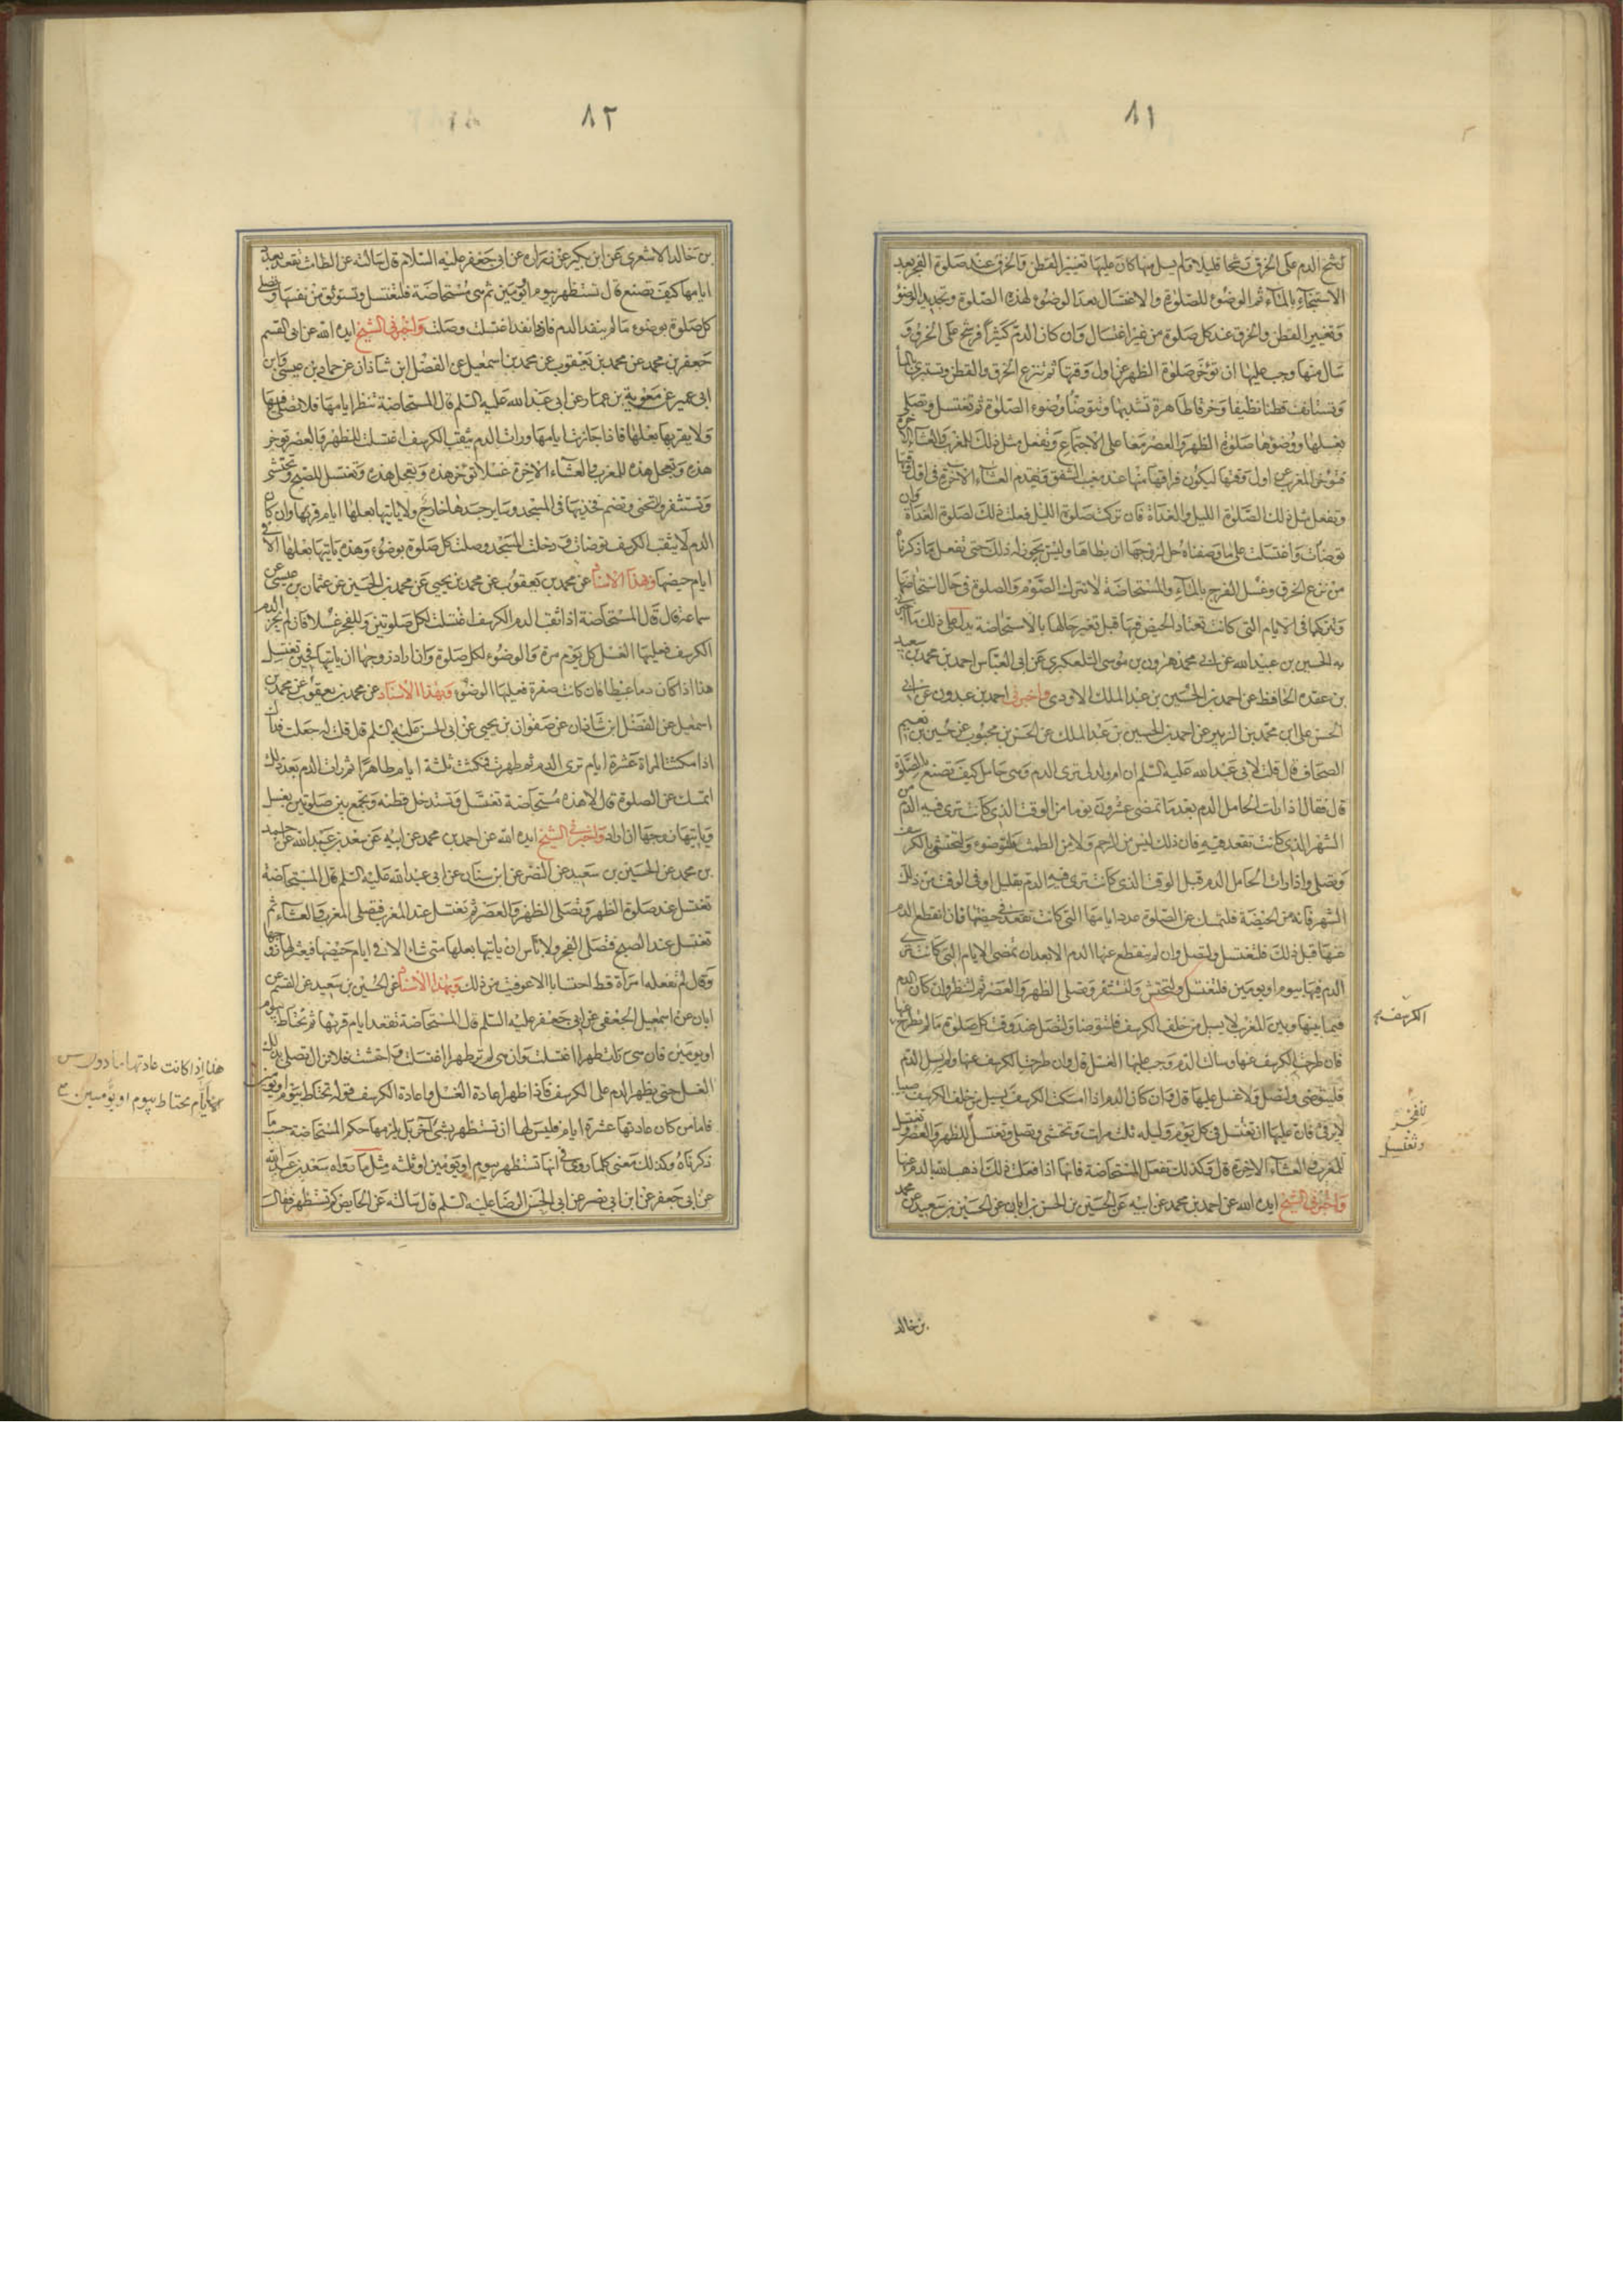 ٨١
رشح الدم على الخرق رشحا قليلا ولم يسل منها كان عليها تغيير القطن والخرق عند صلوة الفجر بعد
الاستنجاء بالمآء ثم الوضوء للصلوة والاغتسال بعد الوضوء لهذه الصلوة وتجديد الوضوء
وتغيير القطن والخرق عند كل صلوة من غير اغتسال وان كان الدم كثيرا فرشح على الخرق و
سال منها وجب عليها ان تؤخر صلوة الظهر عن اول وقتها ثم تنزع الخرق والقطن وتستبرئ بالمآء
وتستانف قطنا نظيفا وخرقا طاهرة تشدبها وتتوضا وضوء الصلوة ثم تغتسل وتصلي
بغسلها ووضوءها صلوة الظهر والعصر معا على الاجتماع وتفعل مثل ذلك للمغرب والعشآء الاخرة
فتؤخر المغرب عن اول وقتها ليكون فراقها منها عند مغيب الشفق وتقدم العشآء الاخرة في اول وقتها
وتفعل مثل ذلك لصلوة الليل والغداة فان تركت صلوة الليل فعلت ذلك لصلوة الغداة وان
توضات واغتسلت على ما وصفناه حل لزوجها ان يطاها وليس يجوز له ذلك حتى تفعل ما ذكرناه
من نزع الخرق وغسل الفرج بالمآء والمستحاضة لا تترك الصوم والصلوة في حال استحاضتها
وتتركهما في الايام التي كانت تعتاد الحيض فيها قبل تغير حالها بالاستحاضة يدل على ذلك ما اخبرني
به الحسين بن عبيد الله عن ابي محمد هرون بن موسى التلعكبري عن ابي العباس احمد بن محمد بن سعيد
بن عقدة الحافظ عن احمد بن الحسين بن عبد الملك الاودي واخبرني احمد بن عبدون عن ابي
الحسن علي بن محمد بن الزبير عن احمد بن الحسين بن عبد الملك عن الحسن بن محبوب عن حسين بن نعيم
الصحاف قال قلت لابي عبد الله عليه السلم ان ام ولد لي ترى الدم وهي حامل كيف تصنع بالصلوة
قال فقال اذا رات الحامل الدم بعد ما تمضي عشرون يوما من الوقت الذي كانت ترى فيه الدم من
الشهر الذي كانت تقعد فيه فان ذلك ليس من الرحم ولا من الطمث فلتتوضوء وتحتشي بالكرسف
وتصلي واذا رات الحامل الدم قبل الوقت الذي كانت ترى فيه الدم بقليل او في الوقت من ذلك
الشهر فانه من الحيضة فلتمسك عن الصلوة عدد ايامها التي كانت تقعد في حيضها فان انقطع الدم
عنها قبل ذلك فلتغتسل ولتصل وان لم ينقطع عنها الدم الا بعد ان تمضي الايام التي كانت ترى
الدم فيها بيوم او يومين فلتغتسل ولتحتش ولتستثفر وتصلي الظهر والعصر ثم لتنظر وان كان الدم
فيما بينها وبين المغرب لا يسيل من خلف الكرسف فلتتوضا ولتصل عند وقت كل صلوة ما لم تطرح عنها
الكرسف
فان طرحت الكرسف عنها وسالت الدم وجب عليها الغسل قال وان طرحت الكرسف عنها ولم يسل الدم
فلتتوضى ولتصل ولا غسل عليها قال وان كان الدم اذا امسكت الكرسف يسيل من خلف الكرسف صبيبا
لا يرقى فان عليها ان تغتسل في كل يوم وليلة ثلث مرات وتحتشي وتصلي وتغتسل للظهر والعصر وتغتسل
للفجر
وتغتسل
للمغرب والعشآء الاخرة قال وكذلك تفعل المستحاضة فانها اذا فعلت ذلك اذهب الله بالدم عنها
واخبرني الشيخ ايده الله عن احمد بن محمد عن ابيه عن الحسين بن الحسن بن ابان عن الحسين بن سعيد عن محمد
بن خالد
٨٢
بن خالد الاشعري عن ابن بكير عن زراره عن ابي جعفر عليه السلام قال سالته عن الطامث تقعد بعدد
ايامها كيف تصنع قال تستظهر بيوم او يومين ثم هي مستحاضة فلتغتسل وتستوثق من نفسها وتصلي
كل صلوة بوضوء ما لم ينفد الدم فاذا نفد اغتسلت وصلت واخبرني الشيخ ايده الله عن ابي القسم
جعفر بن محمد عن محمد بن يعقوب عن محمد بن اسمعيل عن الفضل ابن شاذان عن حماد بن عيسى وابن
ابي عمير عن معوية بن عمار عن ابي عبد الله عليه السلم قال المستحاضة تنظر ايامها فلا تصلي فيها
ولا يقربها بعلها فاذا جازت ايامها ورات الدم يثقب الكرسف اغتسلت للظهر والعصر توخر
هذه وتعجل هذه للمغرب والعشآء الاخرة غسلا توخر هذه وتعجل هذه وتغتسل للصبح وتحتشي
وتستثفر ولا تحني وتضم فخذيها في المسجد وساير جسدها خارج ولا ياتيها بعلها ايام قرئها وان كان
الدم لا يثقب الكرسف توضات ودخلت المسجد وصلت كل صلوة بوضوء وهذه ياتيها بعلها الا في
ايام حيضها وبهذا الاسناد عن محمد بن يعقوب عن محمد بن يحيى عن محمد بن الحسين عن عثمان بن عيسى عن
سماعة قال قال المستحاضة اذا ثقب الدم الكرسف اغتسلت لكل صلوتين وللفجر غسلا فان لم يجز الدم
الكرسف فعليها الغسل كل يوم مرة والوضوء لكل صلوة وان اراد زوجها ان ياتيها فحين تغتسل
هذا اذا كان دما عبيطا فان كانت صفرة فعليها الوضوء وبهذا الاسناد عن محمد بن يعقوب عن محمد بن
اسمعيل عن الفضل ابن شاذان عن صفوان بن يحيى عن ابي الحسن عليه السلم قال قلت له جعلت فداك
اذا مكثت المراة عشرة ايام ترى الدم ثم طهرت فمكثت ثلثة ايام طاهرا ثم رات الدم بعد ذلك
اتمسك عن الصلوة قال لا هذه مستحاضة تغتسل وتستدخل قطنه وتجمع بين صلوتين بغسل
وياتيها زوجها ان اراد واخبرني الشيخ ايده الله عن احمد بن محمد عن ابيه عن سعد بن عبد الله عن احمد
بن محمد عن الحسين بن سعيد عن النضر عن ابن سنان عن ابي عبد الله عليه السلم قال المستحاضة
تغتسل عند صلوة الظهر وتصلي الظهر والعصر ثم تغتسل عند المغرب فتصلي المغرب والعشآء ثم
تغتسل عند الصبح فتصلي الفجر ولا باس ان ياتيها بعلها متى شاء الا في ايام حيضها فيعتزلها زوجها
وقال لم تفعله امراة قط احتسابا الا عوفيت من ذلك وبهذا الاسناد عن الحسين بن سعيد عن القسم عن
ابان عن اسمعيل الجعفي عن ابي جعفر عليه السلم قال المستحاضة تقعد ايام قرئها ثم تحتاط بيوم
او يومين فان هي رات طهرا اغتسلت وان هي لم تر طهرا اغتسلت واحتشت فلا تزال تصلي بذلك
الغسل حتى يظهر الدم على الكرسف فاذا ظهر اعادة الغسل واعادة الكرسف قوله تحتاط بيوم او يومين
هذا اذا كانت عادتها ما دون
ايام تحتاط بيوم او يومين
فاما من كان عادتها عشرة ايام فليس لها ان تستظهر بشئ آخر بل يلزمها حكم المستحاضة حسب ما
ذكرناه وكذلك معنى كلما روي في انها تستظهر بيوم او يومين او ثلثه مثل ما رواه سعد بن عبد الله
عن ابي جعفر عن ابن ابي نصر عن ابي الحسن الرضا عليه السلم قال سالته عن الحايض كم تستظهر فقال